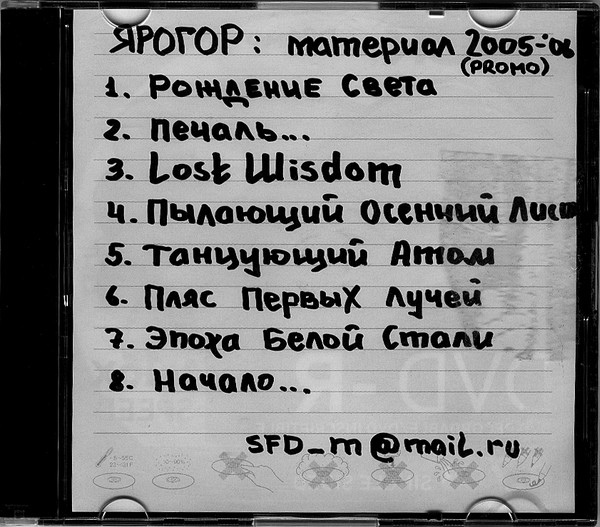 ЯРОГОР: материал 2005-'06
(PROMO)
1. Рождение Света
2. Печаль...
3. Lost Wisdom
4. Пылающий Осенний Лист
5. Танцующий Атом
6. Пляс Первых Лучей
7. Эпоха Белой Стали
8. Начало...
DVD-R
SFD_m@mail.ru